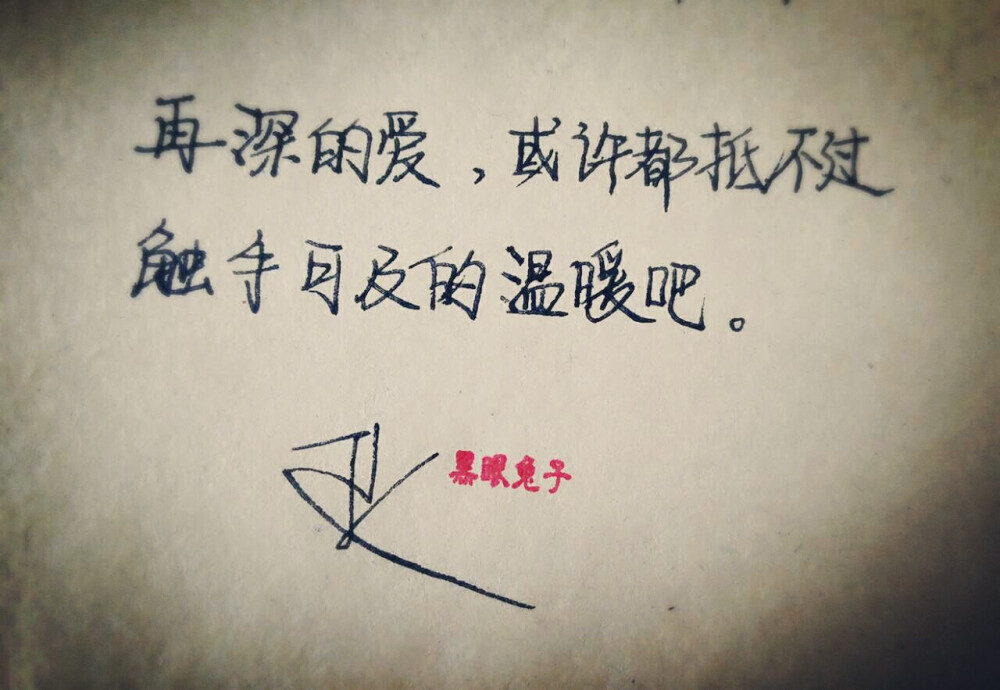 再深的爱，或许都抵不过
触手可及的温暖吧。
黑眼兔子